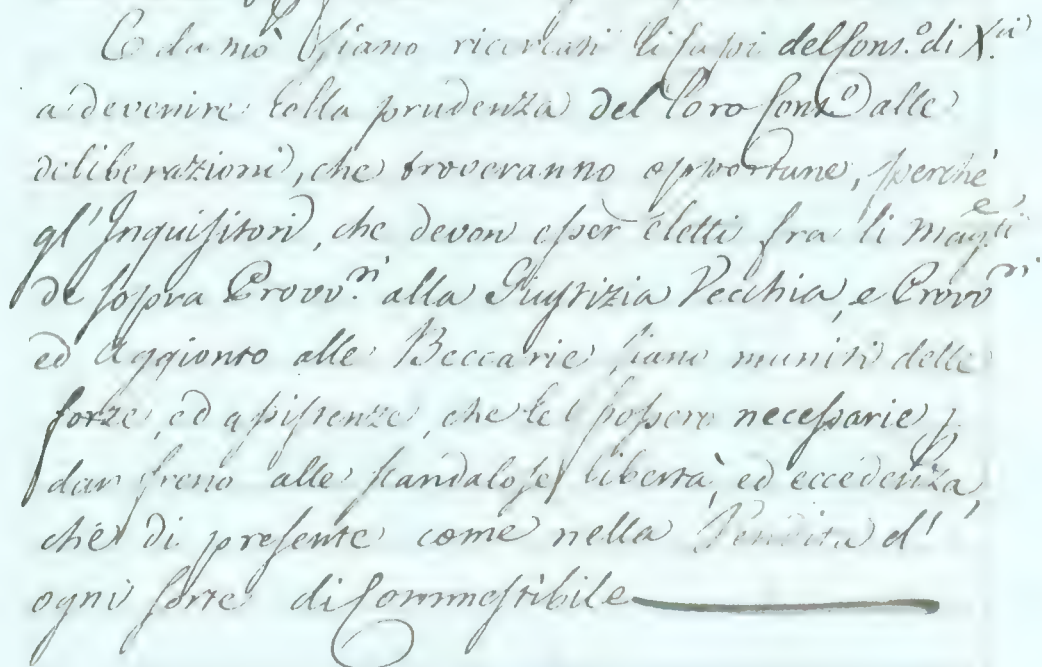 E da mò siano ricercati li Capi del Cons.º di X.ci
a devenire colla prudenza del loro Cons.º alle
deliberazioni, che troveranno opportune, perché
gl' Inquisitori, che devon esser eletti fra li Mag.ti
de sopra Provv.ri alla Giustizia Vecchia, e Provv.ri
ed Aggionto alle Beccarie siano muniti delle
forze, ed assistenze, che le fossero necessarie p
dar freno alle scandalose libertà, ed eccedenza,
che di presente corre nella Vendita d'
ogni sorte di Commestibile